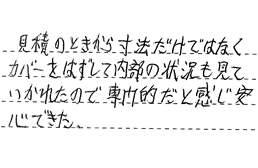 見積のときから寸法だけではなく
カバーをはずして内部の状況も見て
いかれたので専門的だと感じ安
心できた。